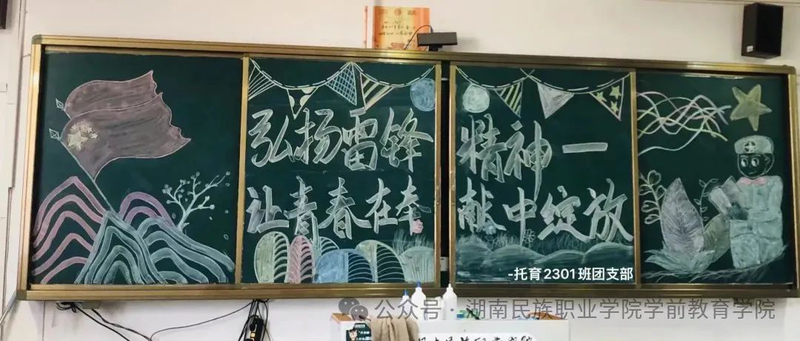 弘扬雷锋精神一
让青春在奉献中绽放
-托育2301班团支部
公众号·湖南民族职业学院学前教育学院